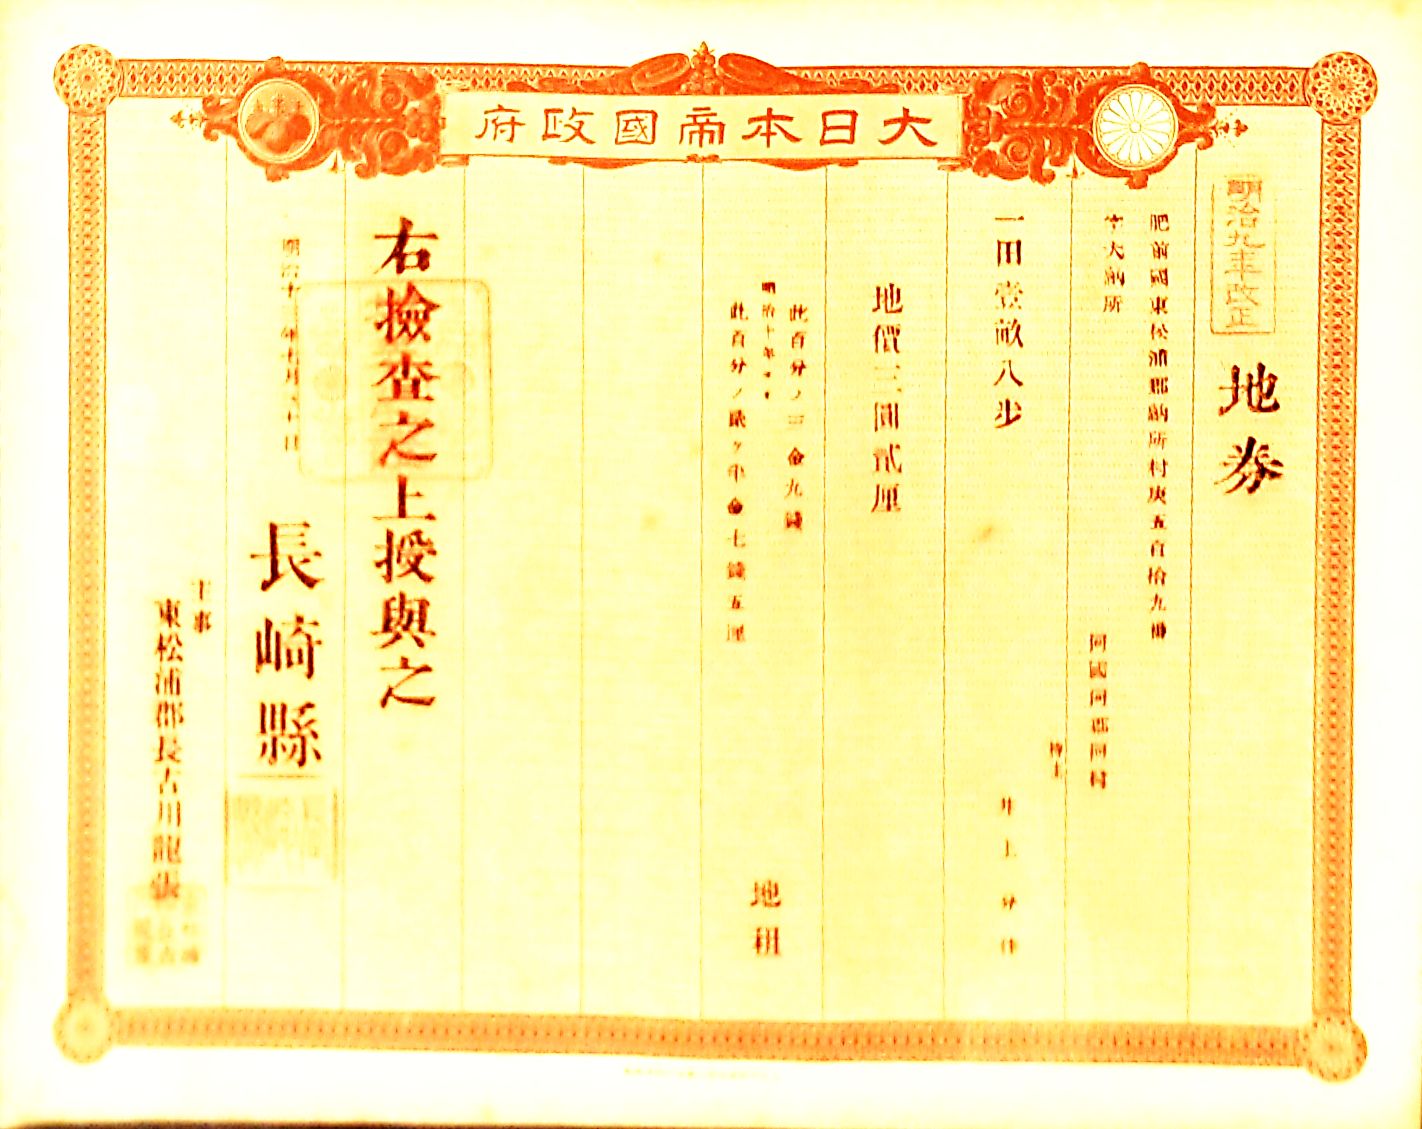 大日本帝國政府
明治九年改正
地券
肥前國東松浦郡納所村庚五百拾九番
字大納所
同國同郡同村
持主
一田壹畝八歩
井上
地價三圓貳厘
此百分ノ三金九錢
明治十年ヨリ
此百分ノ貳ヶ半金七錢五厘
地租
右撿査之上授與之
明治十三年
長崎縣
主事
東松浦郡長古川龍張